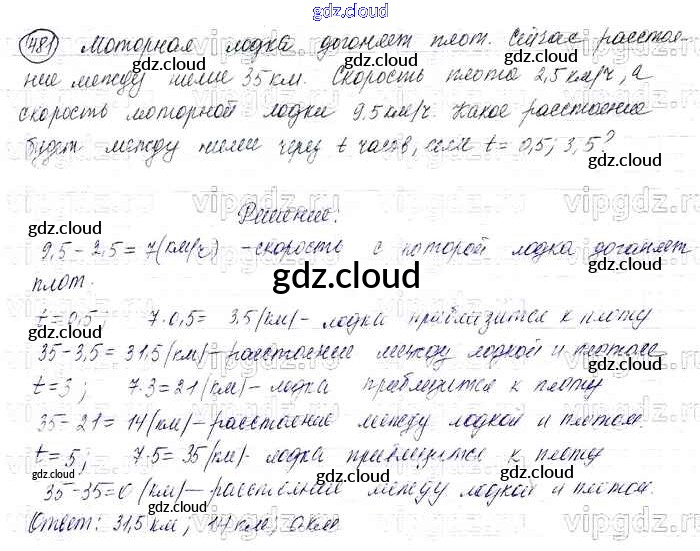 gdz.cloud
481 Моторная лодка догоняет плот. Сейчас расстоя-
ние между ними 35 км. Скорость плота 2,5 км/ч, а
скорость моторной лодки 9.5 км/ч. Какое расстояние
будет между ними через t часов, если t = 0,5; 3, 5?
Решение:
9,5 - 2,5 = 7 (км/ч) - скорость с которой лодка догоняет
плот.
gdz.cloud
t = 0,5; 7·0,5 = 3.5 (км) - лодка приблизится к плоту
35 - 3,5 = 31,5 (км) - расстояние между лодкой и плотом
t = 3; 7·3 = 21 (км) - лодка приблизится к плоту
35 - 21 = 14 (км) - расстояние между лодкой и плотом.
t = 5; 7·5 = 35 (км) - лодка приблизится к плоту
35 - 35 = 0 (км) - расстояние между лодкой и плотом.
Ответ: 31,5 км, 14 км, 0 км